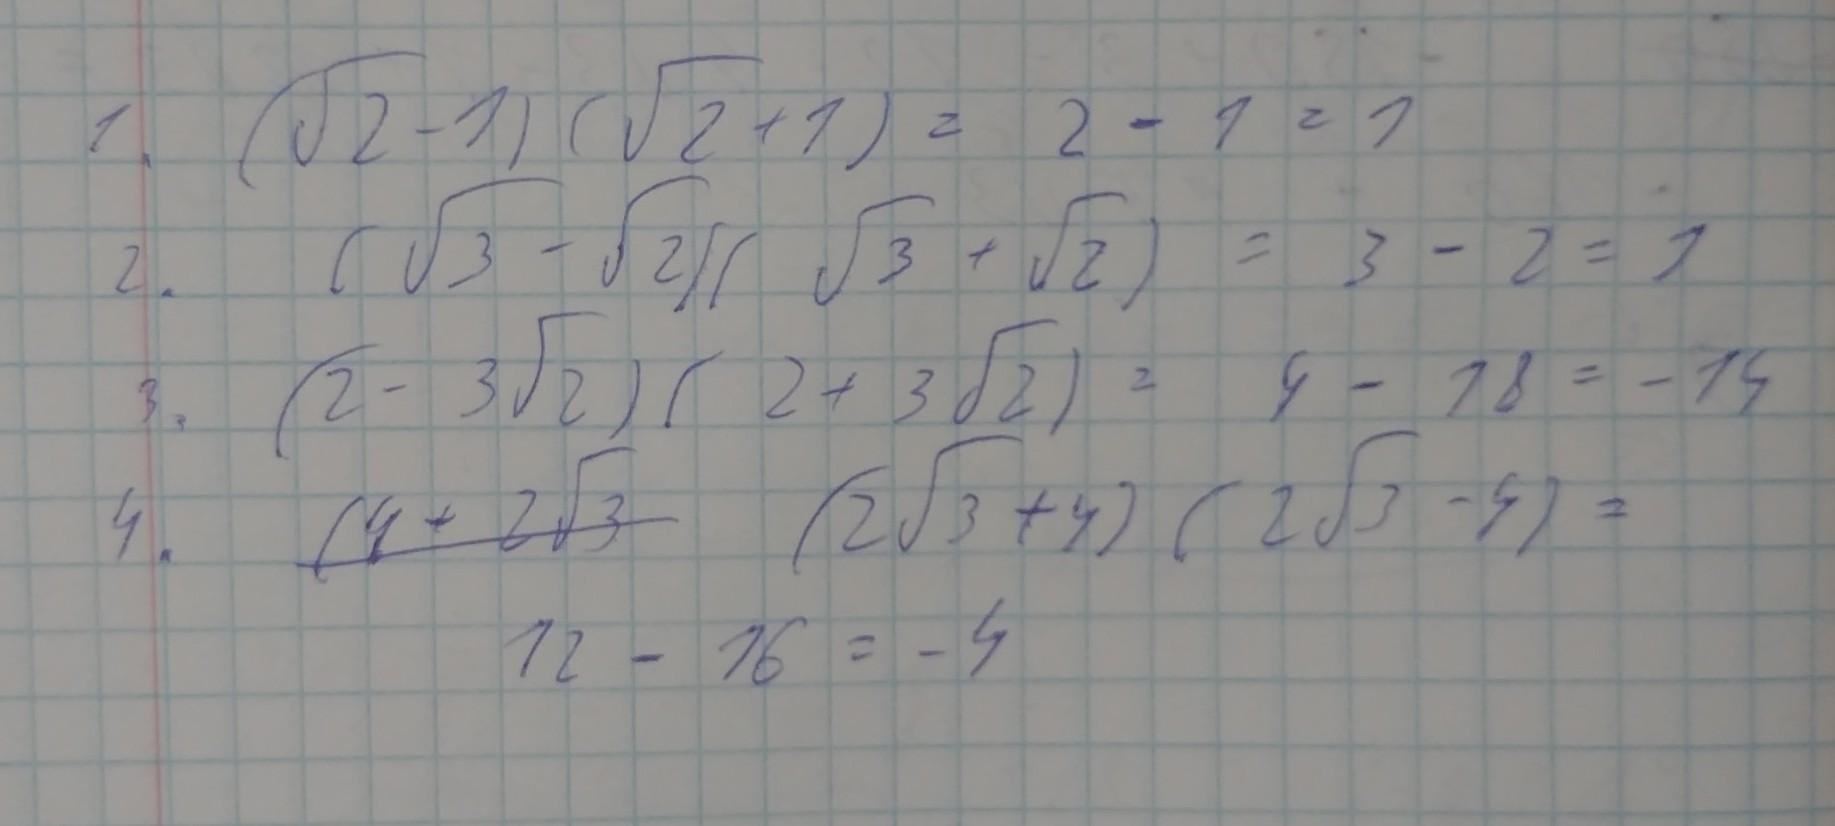 1. (√2 - 1) (√2 + 1) = 2 - 1 = 1
2. (√3 - √2)(√3 + √2) = 3 - 2 = 1
3. (2 - 3√2) (2 + 3√2) = 4 - 18 = -14
4. (4 + 2√3 (2√3 + 4) (2√3 - 4) =
12 - 16 = -4